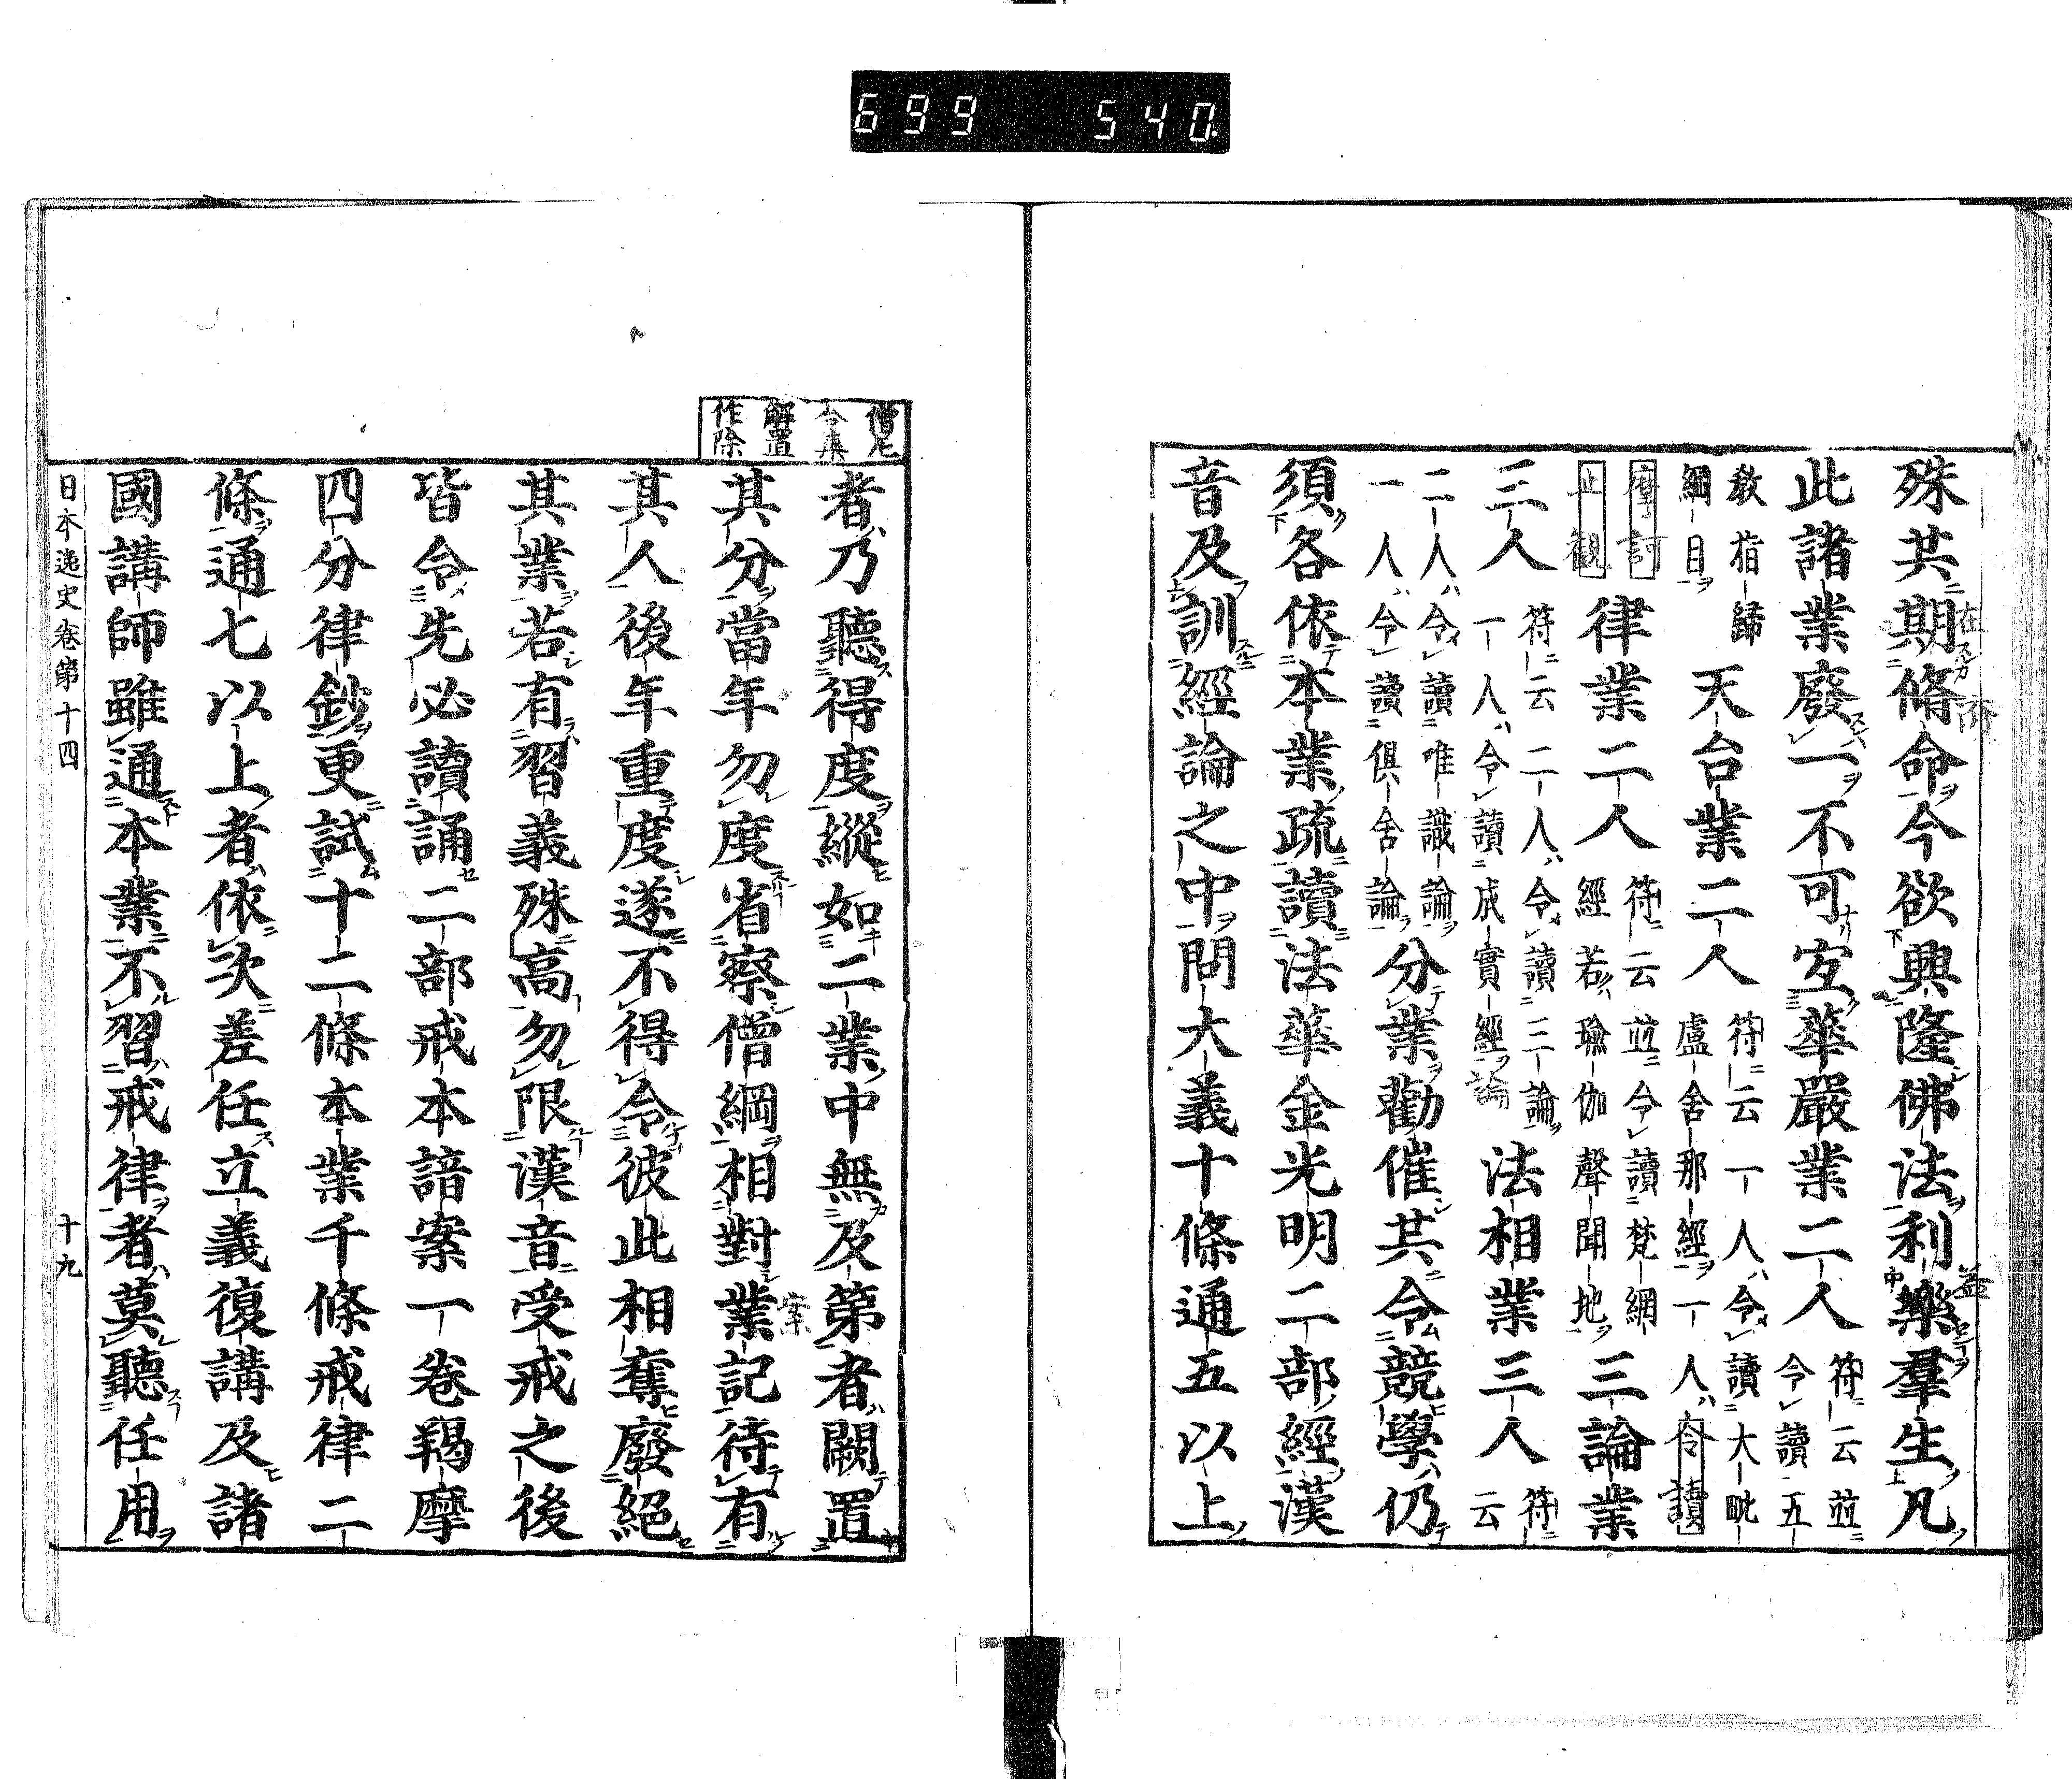 699 540
殊共期脩命今欲興隆佛法利樂羣生凡
此諸業廢一不可宜華嚴業二人
符云並
令讀五
教指歸
綱目
天台業二人
符云一人令讀大毗
盧舍那經一人令讀
摩訶
止觀
律業二人
符云並令讀梵網
經若瑜伽聲聞地
三論業
三人
符云二人令讀三論
一人令讀成實經論
法相業三人
符云
二人令讀唯識論
一人令讀俱舍論
分業勸催共令競學仍
須各依本業疏讀法華金光明二部經漢
音及訓經論之中問大義十條通五以上
者乃聽得度縱如二業中無及第者闕置
其分當年勿度省察僧綱相對業記待有
其人後年重度遂不得令彼此相奪廢絕
其業若有習義殊高勿限漢音受戒之後
皆令先必讀誦二部戒本諳案一卷羯摩
四分律鈔更試十二條本業千條戒律二
條通七以上者依次差任立義復講及諸
國講師雖通本業不習戒律者莫聽任用
解置
作除
日本逸史卷第十四
十九